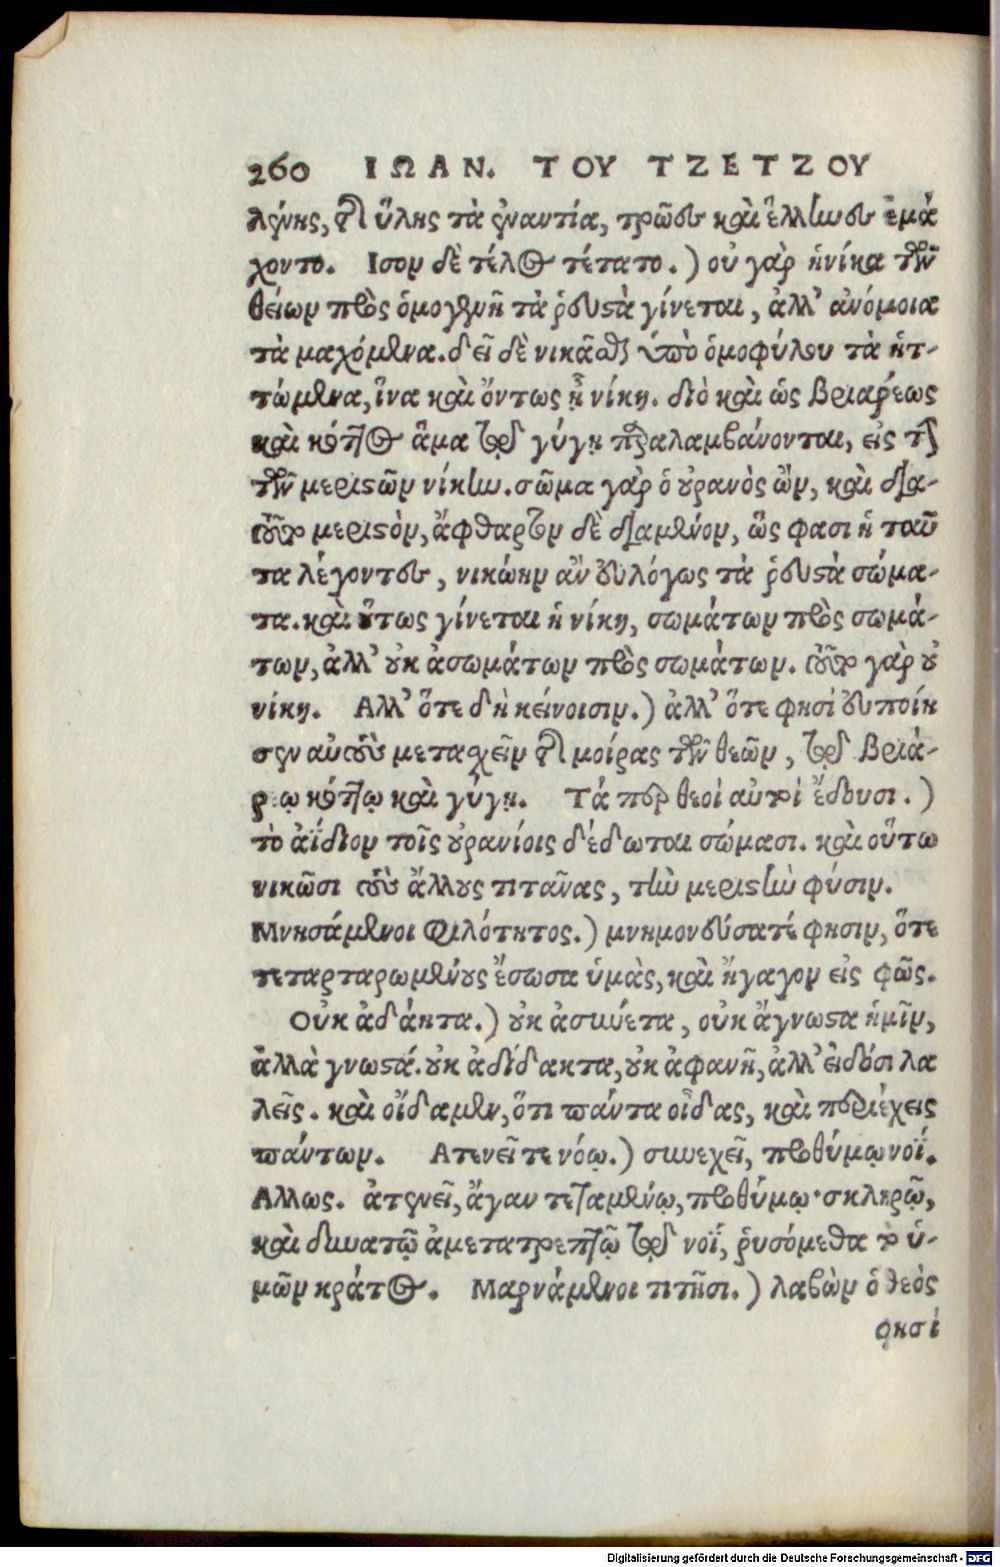 260 ΙΩΑΝ. ΤΟΥ ΤΖΕΤΖΟΥ
λένης, τῆς ὕλης τὰ ἐναντία, τρῶσιν καὶ ἕλλησιν ἐμά
χοντο. Ισον δὲ τέλος τέτατο.) οὐ γὰρ ἡνίκα τῶν
θείων πρὸς ὁμογενῆ τὰ ῥευστὰ γίνεται, ἀλλ' ἀνόμοια
τὰ μαχόμενα. δεῖ δὲ νικᾶσθαι ὑπὸ ὁμοφύλου τὰ ἡτ-
τώμενα, ἵνα καὶ ὄντως ᾖ νίκη. διὸ καὶ ὡς βριαρέως
καὶ κόττος ἅμα τῷ γύγῃ παραλαμβάνονται, εἰς τὴν
τῶν μεριστῶν νίκην. σῶμα γὰρ ὁ οὐρανὸς ὢν, καὶ δια-
τοῦτο μεριστὸν, ἄφθαρτον δὲ διαμένον, ὥς φασι ἡ ταῦ
τα λέγοντες, νικώην ἂν εὐλόγως τὰ ῥευστὰ σώμα-
τα. καὶ οὕτως γίνεται ἡ νίκη, σωμάτων πρὸς σωμά-
των, ἀλλ' οὐκ ἀσωμάτων πρὸς σωμάτων. τοῦτο γὰρ οὐ
νίκη. Αλλ' ὅτε δὴ κείνοισιν.) ἀλλ' ὅτε φησί εὐποίη
σεν αὐτοὺς μετασχεῖν τῆς μοίρας τῶν θεῶν, τῷ βριά-
ρεῳ κόττῳ καὶ γύγῃ. Τά περ θεοὶ αὐτοὶ ἔδουσι.)
τὸ ἀΐδιον τοῖς οὐρανίοις δέδωται σώμασι. καὶ οὕτω
νικῶσι τοὺς ἄλλους τιτᾶνας, τὴν μεριστὴν φύσιν.
Μνησάμενοι φιλότητος.) μνημονεύσατέ φησιν, ὅτε
τεταρταρωμένους ἔσωσα ὑμᾶς, καὶ ἤγαγον εἰς φῶς.
Οὐκ ἀδάητα.) οὐκ ἀσυνετα, οὐκ ἄγνωστα ἡμῖν,
ἀλλὰ γνωστά. οὐκ ἀδίδακτα, οὐκ ἀφανῆ, ἀλλ' εἰδόσι λα
λεῖς. καὶ οἴδαμεν, ὅτι πάντα οἶδας, καὶ περιέχεις
πάντων. Ατενεῖ τε νόῳ.) συνεχεῖ, προθύμῳ νοΐ.
Αλλως. ἀτενεῖ, ἄγαν τεταμένῳ, προθύμῳ· σκληρῷ,
καὶ δυνατῷ ἀμετατρεπτῷ τῷ νοΐ, ῥυσόμεθα τὸ ὑ-
μῶν κράτος. Μαρνάμενοι τιτῆσι.) λαβὼν ὁ θεὸς
φησὶ
Digitalisierung gefördert durch die Deutsche Forschungsgemeinschaft - DFG